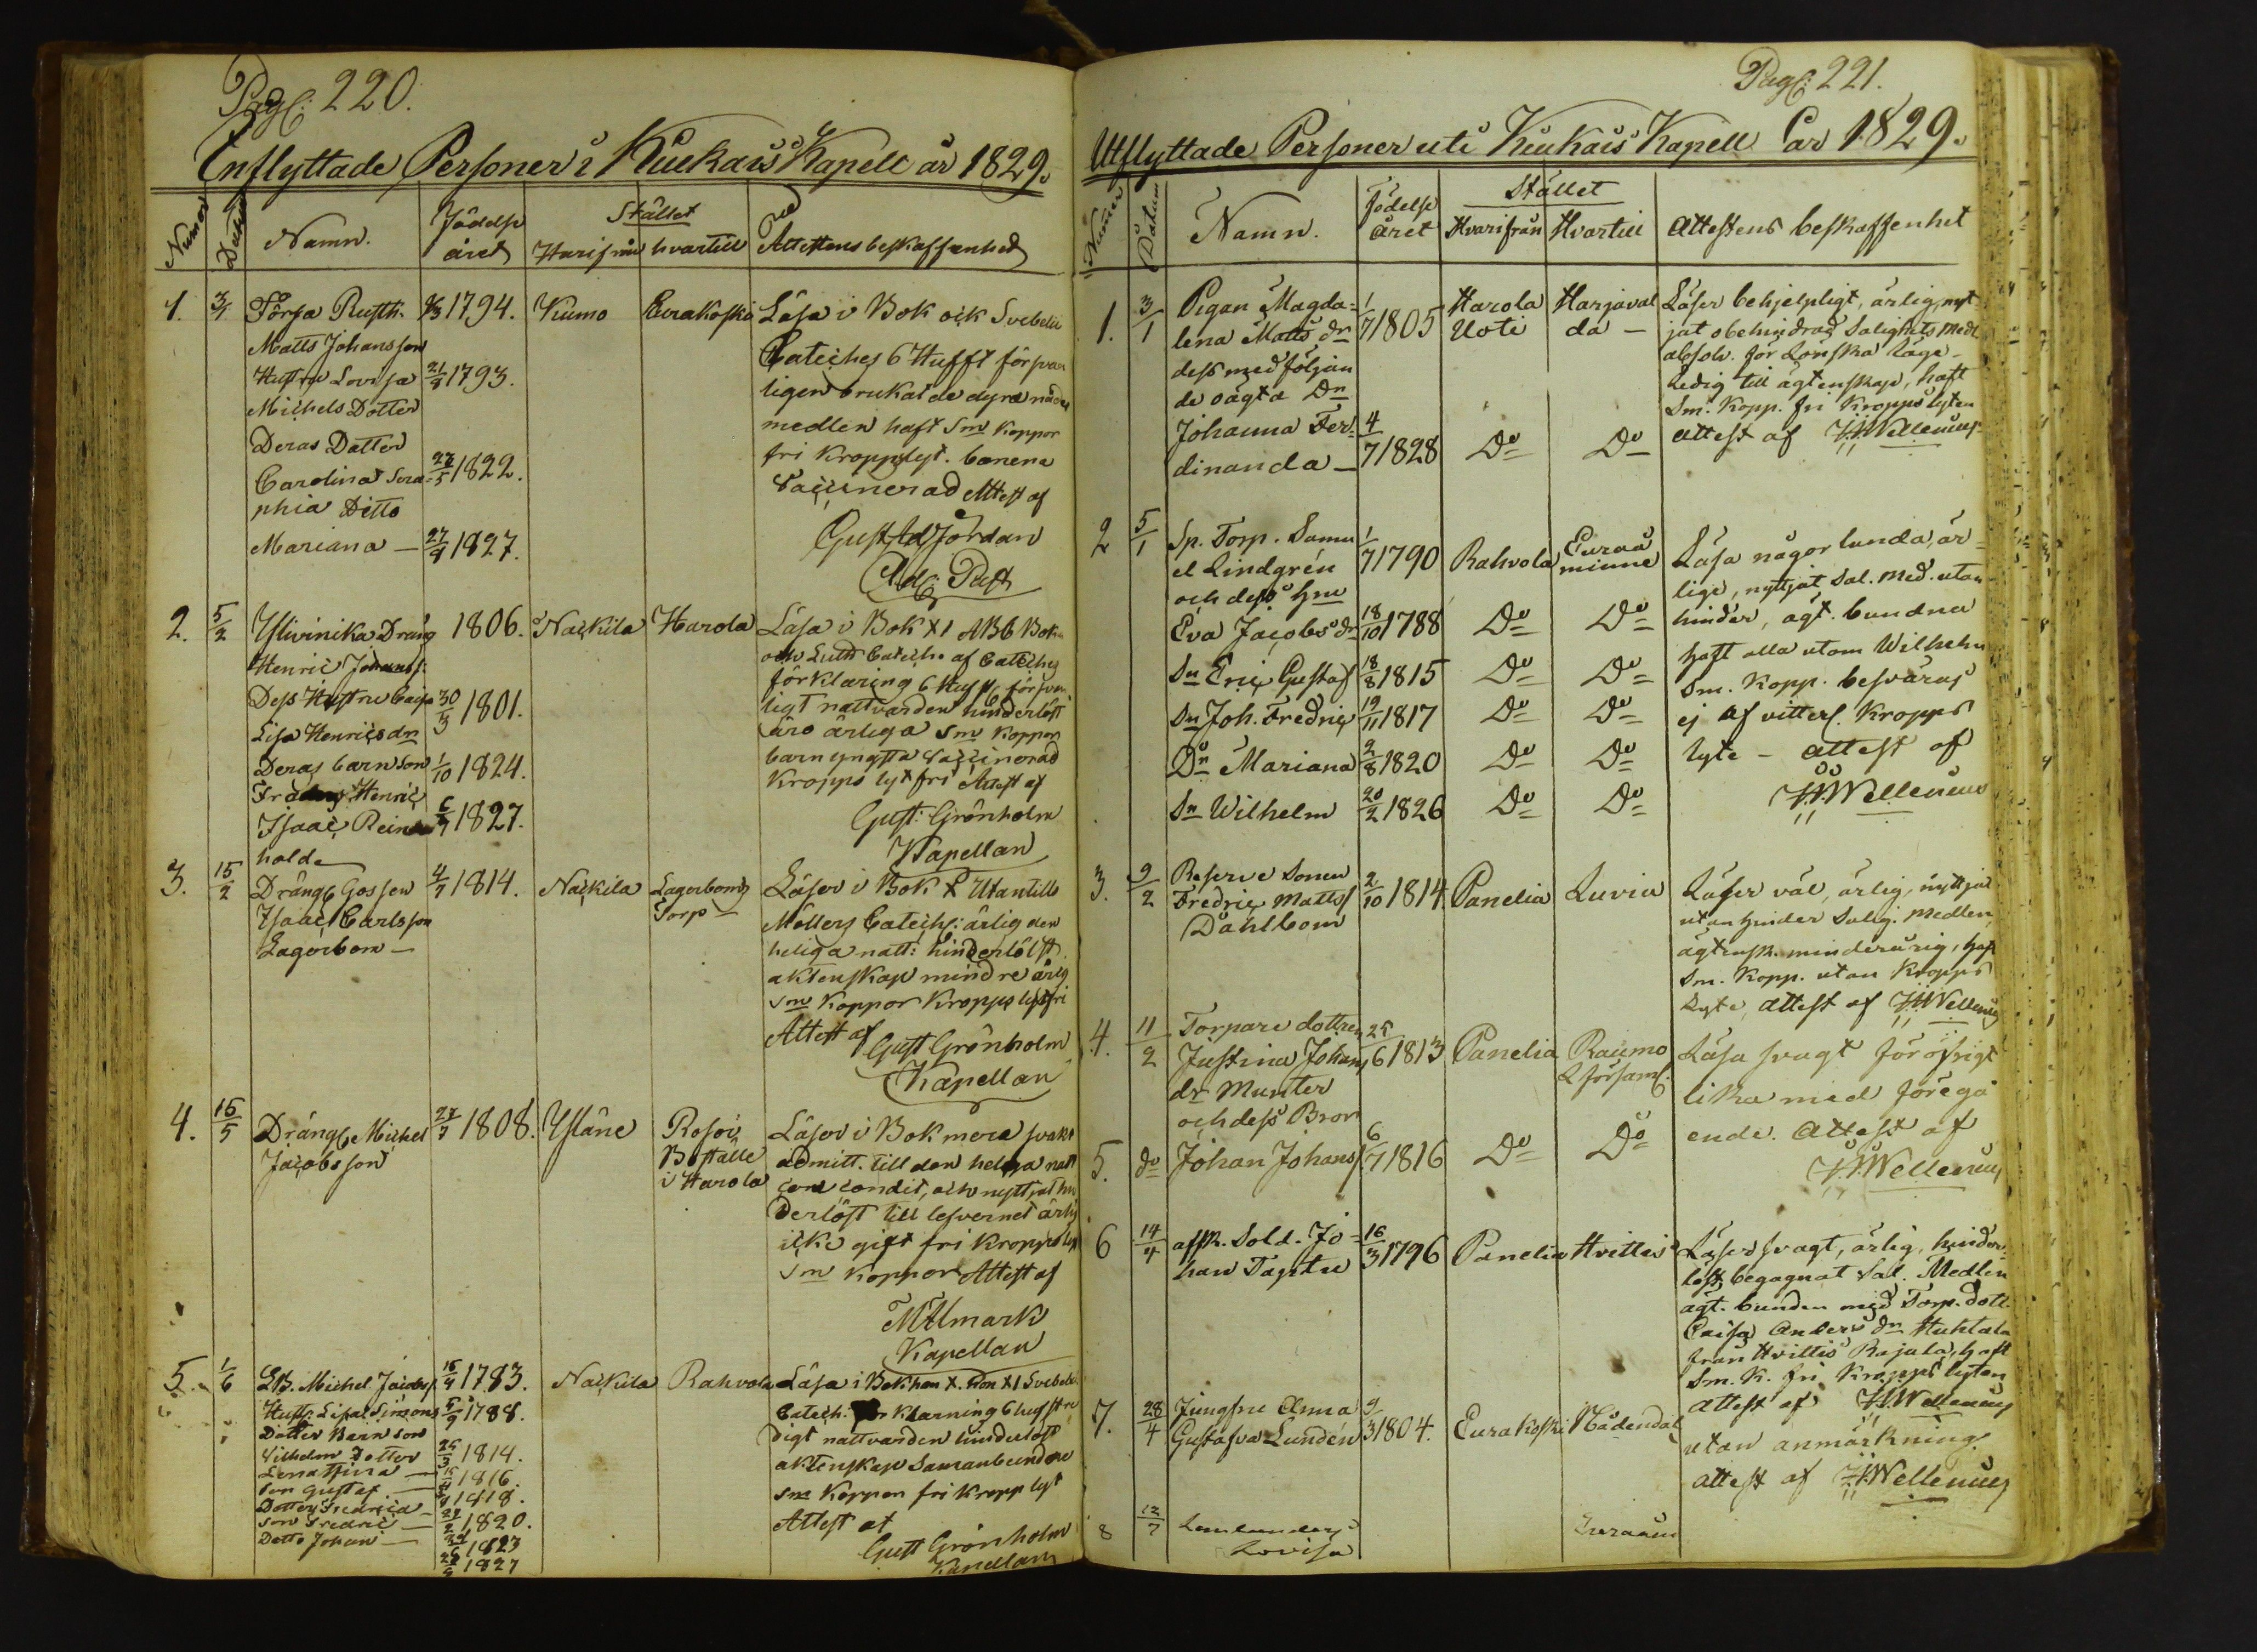 Pag: 220.
Inflyttade Personer i Kiukais Kapell år 1829.
Numer
Datum
Namn.
Födelse
året
Stället
Harifrån
hvartill
Attestens beskaffenhet
1. 3/1 Förpa Rusth. 1794. Kiumo Eurakoski Läsa i Bok ock Svebelii
Matts Johansson
Hustru Lovisa 21/3 1793.
Catiches 6 Hufft försvar
Michels Dotter
ligen brukat de dyra nådes
Deras Dotter
medlen haft Sm Koppor
Carolina Sera= 1822.
fri Kroppslyt. barnena
phia Ditto
Vaccinerad Attest af
Mariana — 1827.
Gust Ad Jordan
Adj: Past
2. 5/2 Ylivinika Dräng 1806. Nackila Harola Läsa i Bok X1 ABC Bok
Henric Johanss:
och Luth Catich. af Catiches
Dess Hustru Caisa 30/3 1801.
förklaring 6 Hufft försvar
Lisa Henricsdr
ligt nattvarden hinderlöst
äro ärliga Sm Koppor
Deras barn Son 1/10 1824.
barn yngsta Vaccinerad
Henric
Kropps lyt fri Attest af
Isaac Rein 1827.
Gust: Grönholm
holde
Kapellan
3. 15/2 Dränge Gossen 4/7 1814. Nackila Lagerboms Läser i Bok X Utantill
Isaac Carlsson
Torp
Möllers Catich: ärlig den
Lagerbom —
heliga natt: hinderlöst
aktenskap mindre årig
Sm Koppor Kropps lyt fri
Attest af
Gust Grönholm
Kapellan
4. 16/5 Dränge Michel 27/7 1808. Yläne Rosoi Läser i Bok mera svakt
Jacobsson
Boställe
admitt. till den helga natt
i Harola
condit, och nyttjat hin
derlöst till lefvernet ärlig
icke gift fri Kropps lyt
Sm Koppor Attest af
M Almark
Kapellan
5. 1/6 LB. Michel Jacobss 16/4 1783. Nackila Rahvola Läsa i Bok han X. hon X1 Svebelii
Hustr: Lisa Simons 5/9 1788.
Catech. klarning 6 hufst
Dotter Barn Son
digt nattvarden hinderlöst
Vilhelm Dotter 25/3 1814.
aktenskap Samanbundne
Lena Stina — 1816.
Sm Koppor fri Kropp lyt
Son Gustaf. — 1818.
Dotter Fredrica — 1820.
Attest af
Son Fredric — 1823
Gust Grönholm
Detto Johan — 1827
Kapellan
Pag: 221.
Utflyttade Personer uti Kiukais Kapell År 1829.
Numer
Datum
Namn.
Födelse
året
Stället
Hvarifrån
Hvartill
Attestens beskaffenhet
1. 3/1 Pigan Magda= 1/7 1805 Harola Harjaval Läser behjelpligt, ärlig, nyt
lena Matts dr
Uoti
da —
jat obehindrad Salighets medl.
dess med följan
absolv. för Lönska läge
de oägta Dr
Ledig till ägtenskap, haft
Johanna Fer= 4/7 1828 Do Do
Sm. Kopp. fri Kropps lyten
dinanda —
attest af J.H. Wellenius
2 5/1 Sp. Torp. Samu 1/7 1790 Rahvola Euraå
el Lindgrén
minne
Läsa någor lunda, är=
och dess hu
lige, nyttjat Sal. med. utan
Eva Jacobs dr 18/10 1788 Do Do
hinder, ägt. bundna
Sn Eric Gustaf 18/8 1815 Do Do
haft alla utom Wilhelm
Sm. Kopp. besväras
Sn Joh. Fredric 19/11 1817 Do Do
ej af vitterl. Kropps
Dr Mariana 2/8 1820 Do Do
lyte — attest af
Sn Wilhelm 20/2 1826 Do Do
J.H. Wellenius
3. 9/2 Reserve Sonen
Fredric Mattss 2/10 1814 Panelia Luvia Läser väl, ärlig, nyttjat
Dahlbom
utan hinder Salig. medlen,
ägtensk. minderårig, haft
Sm. Kopp. utan Kropps
Lyte, attest af J.H. Wellenius
4. 11/2 Torpare dottren
Justina Johans 25/6 1813 Panelia Raumo Läsa svagt för öfrigt
dr Munter
L församl:
lika med föregå
och dess Bror
ende. Attest af
5. do Johan Johans 6/7 1816 Do Do
J.H. Wellenius
6 14/4 afsk. Sold. Jo= 16/3 1796 Panelia Hvittis Läser svagt, ärlig, hinder
han Taptu
löst begagnat Sal. Medlen
ägt. bunden med Torp. dott.
Caisa Anders dr Huhtala
från Hvittis Rajala, haft
Sm. K. fri Kropps lyten
attest af J.H. Wellenius
7. 28/4 Jungfru Anna 9/3 1804. Eurakoski Nådendal
Gustafva Lundén
utan anmärkning.
attest af J.H. Wellenius
8 12/7
Lovisa